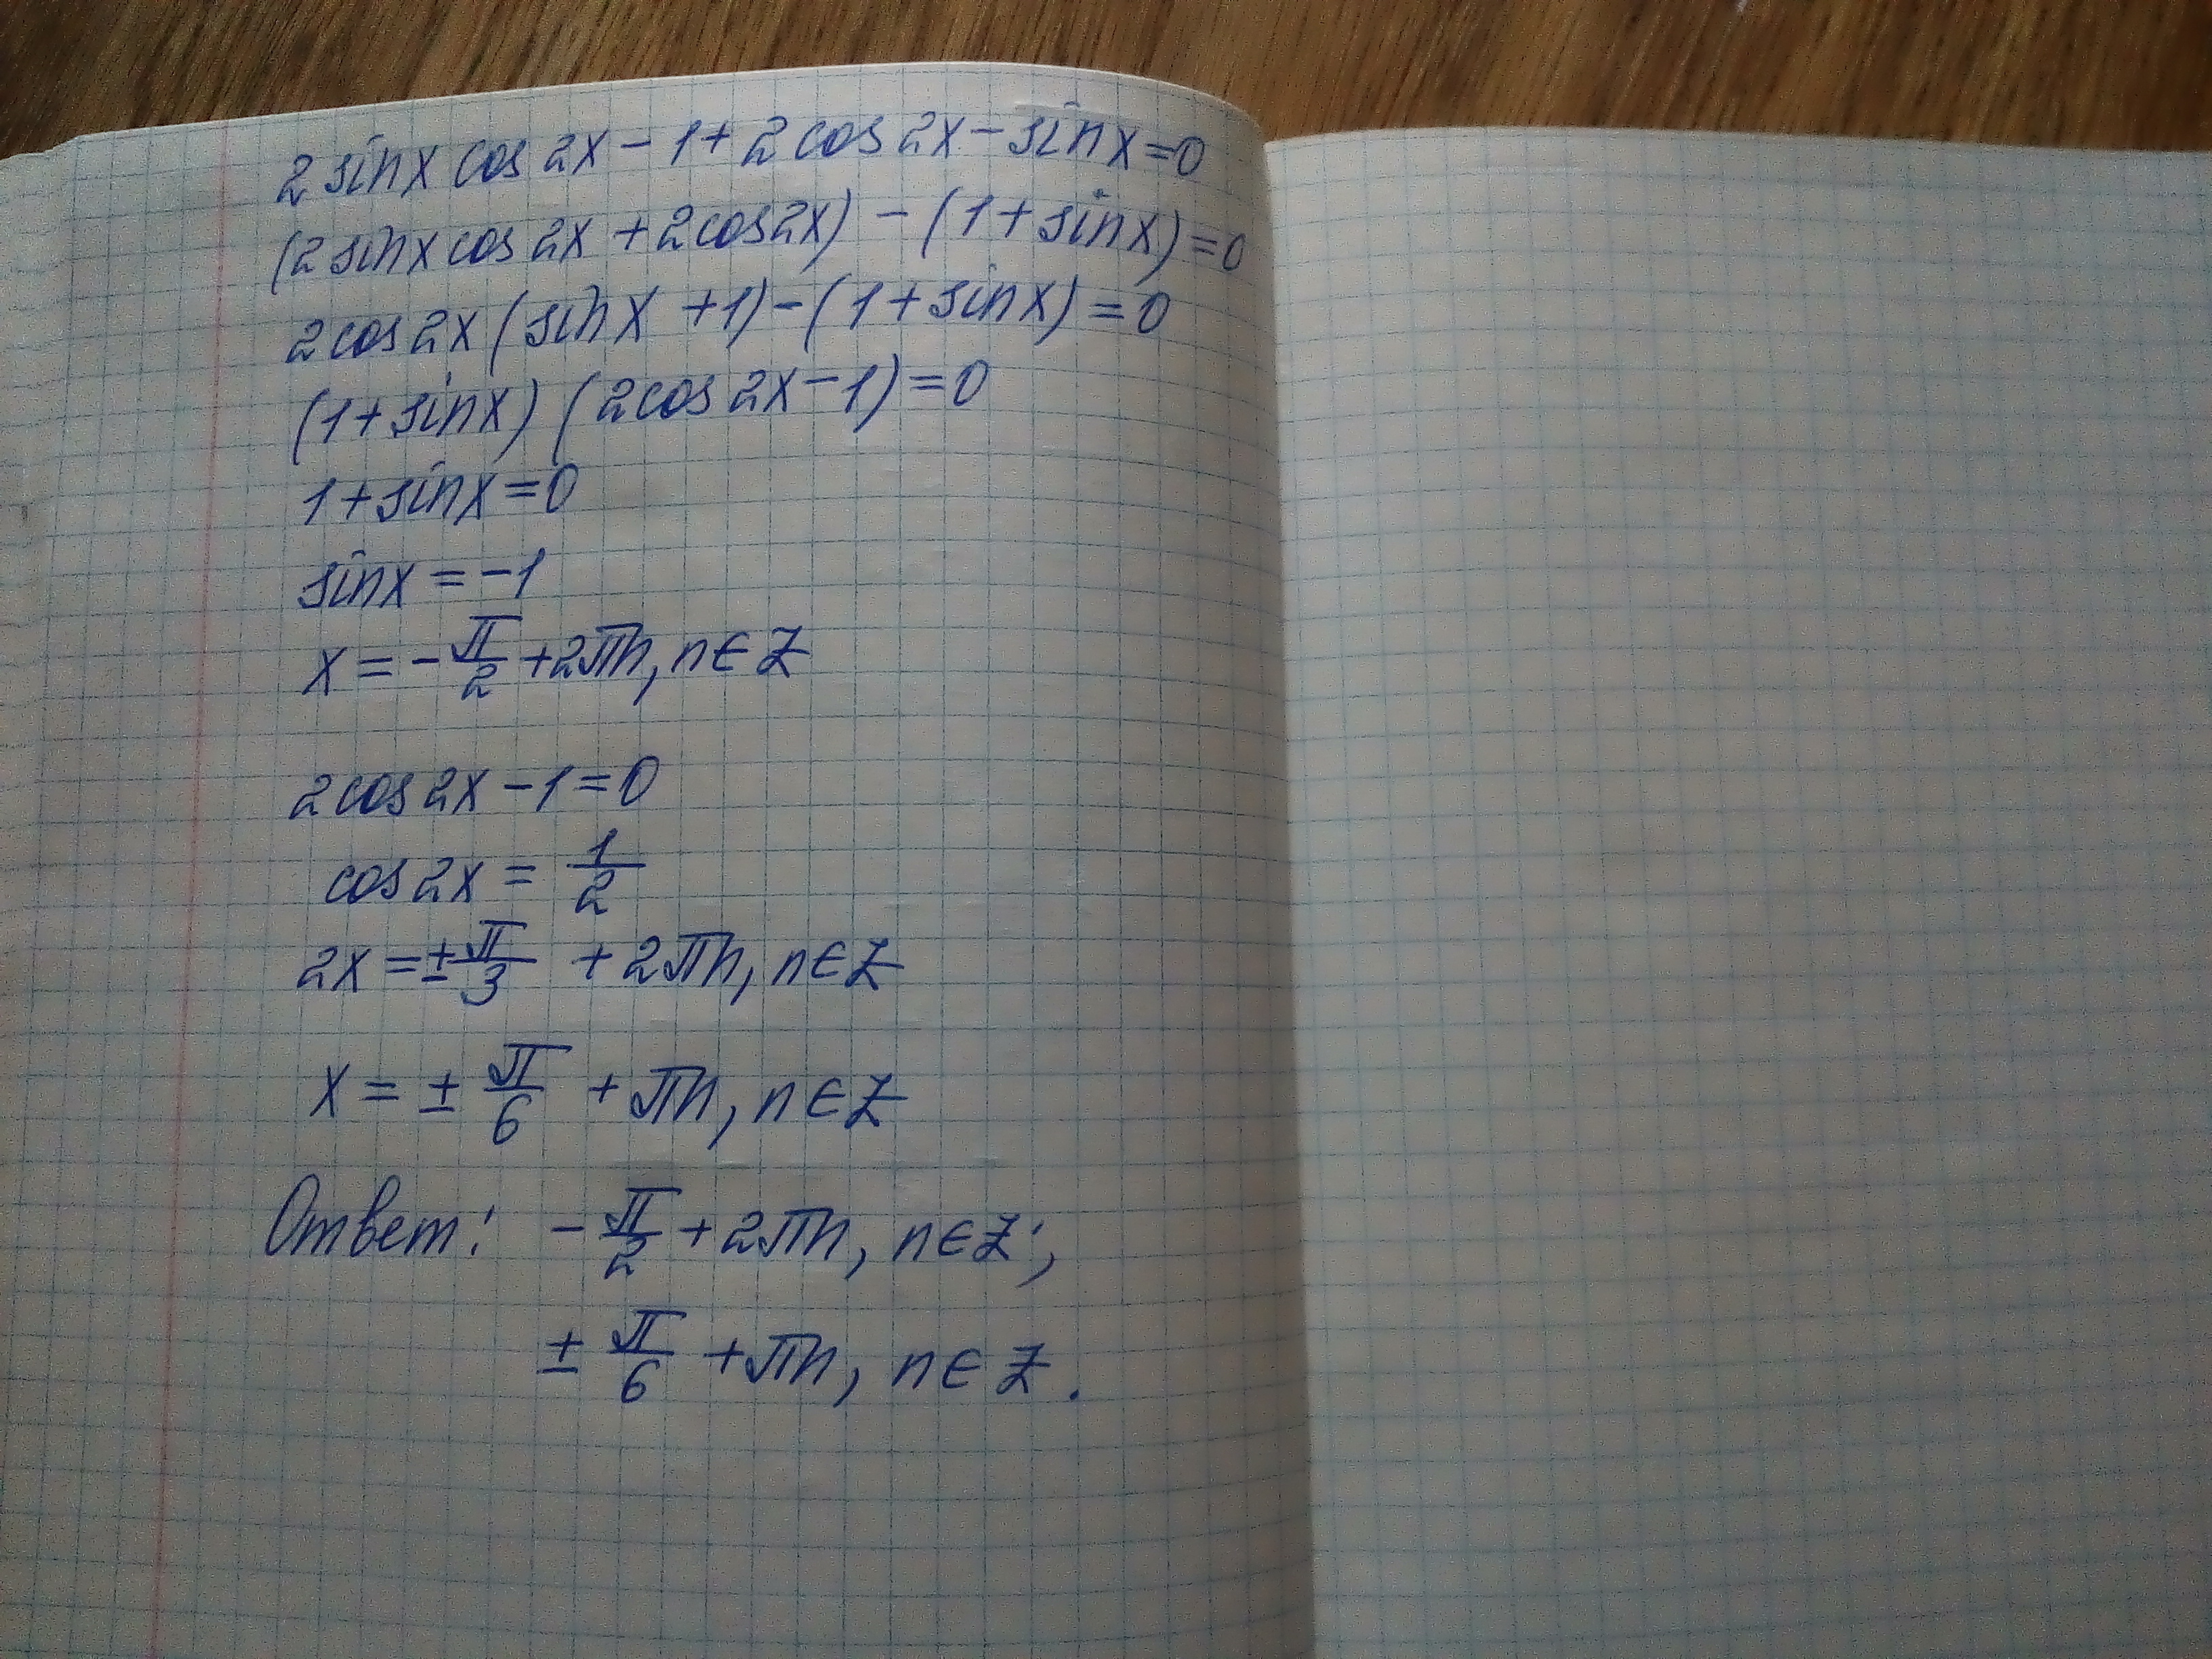 2 sinx cos 2x - 1 + 2 cos 2x - sinx = 0
(2 sinx cos 2x + 2cos2x) - (1 + sinx) = 0
2cos 2x (sinx + 1) - (1 + sinx) = 0
(1 + sinx) (2cos 2x - 1) = 0
1 + sinx = 0
sinx = -1
x = - π/2 + 2πn, n ∈ Z
2cos 2x - 1 = 0
cos 2x = 1/2
2x = ± π/3 + 2πn, n ∈ Z
x = ± π/6 + πn, n ∈ Z
Ответ: - π/2 + 2πn, n ∈ Z;
± π/6 + πn, n ∈ Z.